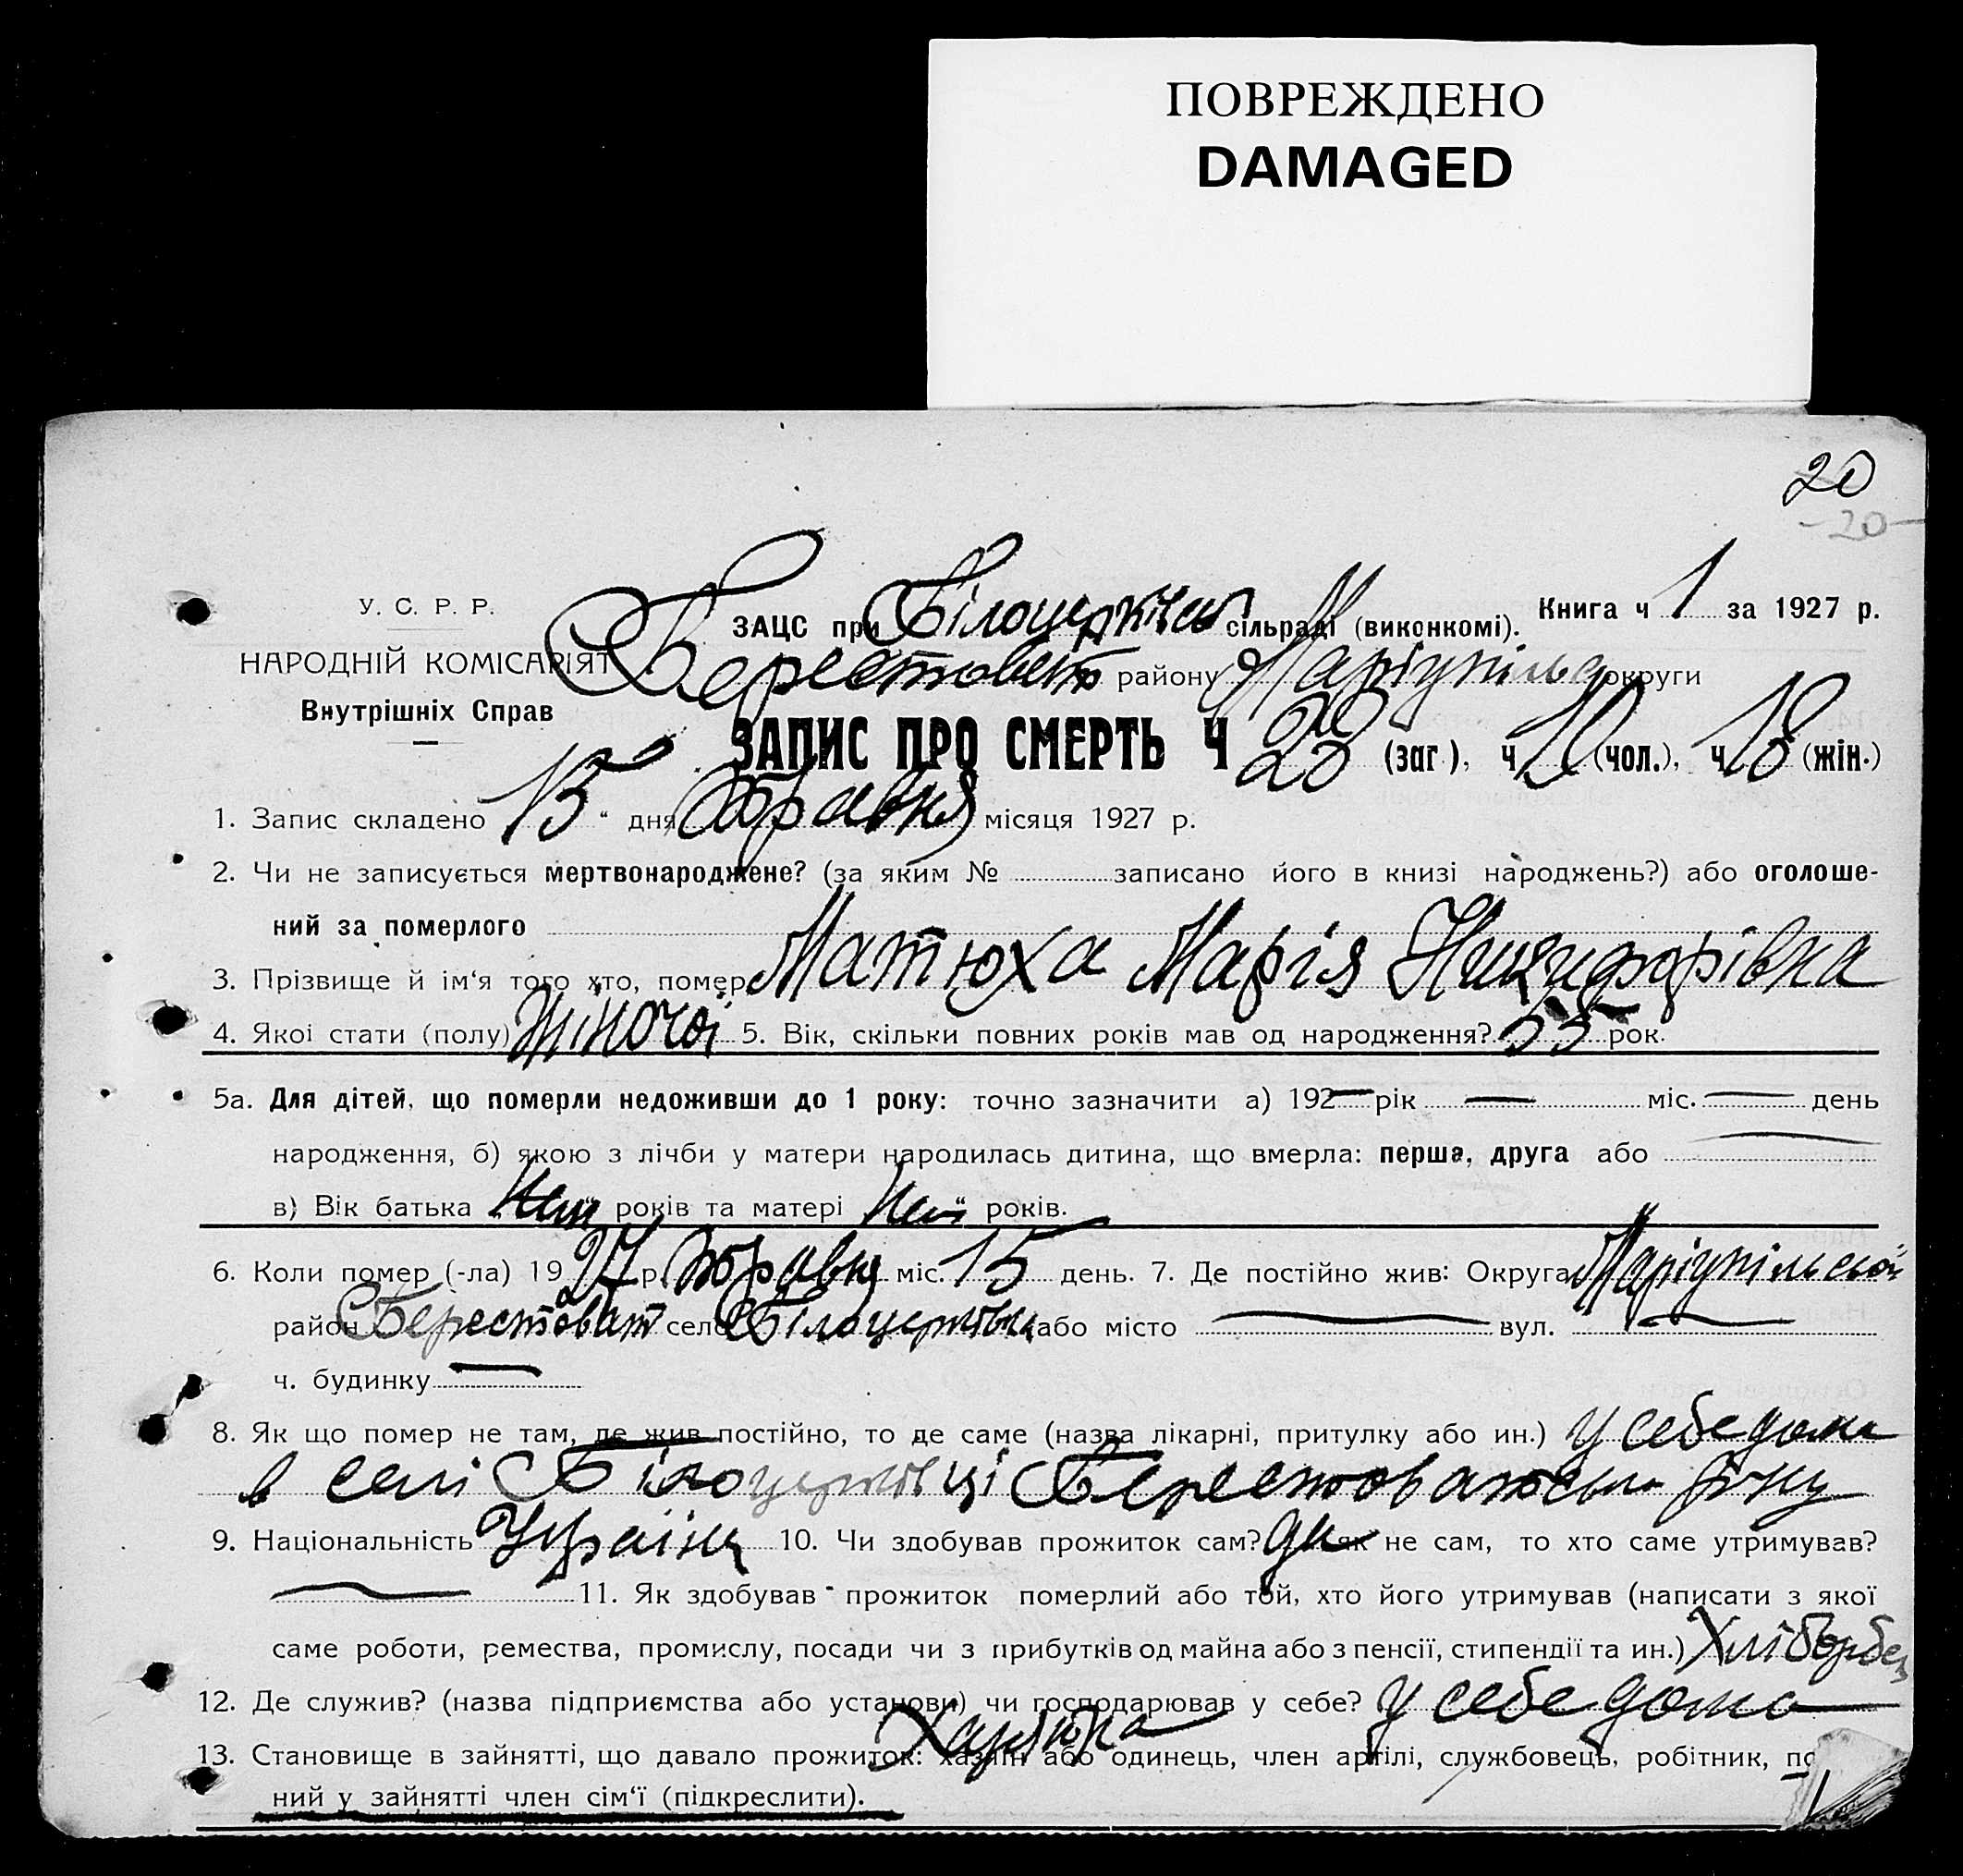 ПОВРЕЖДЕНО
DAMAGED
20
-20-
У. С. Р. Р.
НАРОДНІЙ КОМІСАРІЯТ
Внутрішніх Справ
ЗАЦС при Білоцерківсь сільраді (виконкомі). Книга ч 1 за 1927 р.
Берестоват району Маріупільс округи
ЗАПИС ПРО СМЕРТЬ Ч 28 (заг), ч 10 (чол.), ч 18 (жін.)
1. Запис складено 15 " дня Травня місяця 1927 р.
2. Чи не записується мертвонароджене? (за яким № записано його в книзі народжень?) або оголоше-
ний за померлого
3. Прізвище й ім'я того хто, помер Матюха Марія Никифорівна
4. Якоі стати (полу) Жіночої 5. Вік, скільки повних років мав од народження? 55 рок.
5а. Для дітей, що померли недоживши до 1 року: точно зазначити а) 192— рік — міс. — день
народження, б) якою з лічби у матери народилась дитина, що вмерла: перша, друга або —
в) Вік батька років та матері років.
6. Коли помер (-ла) 1927 р. Травня міс. 15 день. 7. Де постійно жив: Округа Маріупільської
район Берестоват село Білоцерківка або місто — вул. —
ч. будинку —
8. Як що помер не там, де жив постійно, то де саме (назва лікарні, притулку або ин.) у себе дома
в селі Білоцерківці Берестоватськ р-ну
9. Національність Україн 10. Чи здобував прожиток сам? да як не сам, то хто саме утримував?
— 11. Як здобував прожиток померлий або той, хто його утримував (написати з якої
саме роботи, ремества, промислу, посади чи з прибутків од майна або з пенсії, стипендії та ин.) Хлібороб
12. Де служив? (назва підприємства або установи) чи господарював у себе? у себе дома
13. Становище в зайнятті, що давало прожиток: хазяїн або одинець, член артілі, службовець, робітник,
ний у зайнятті член сім'ї (підкреслити).